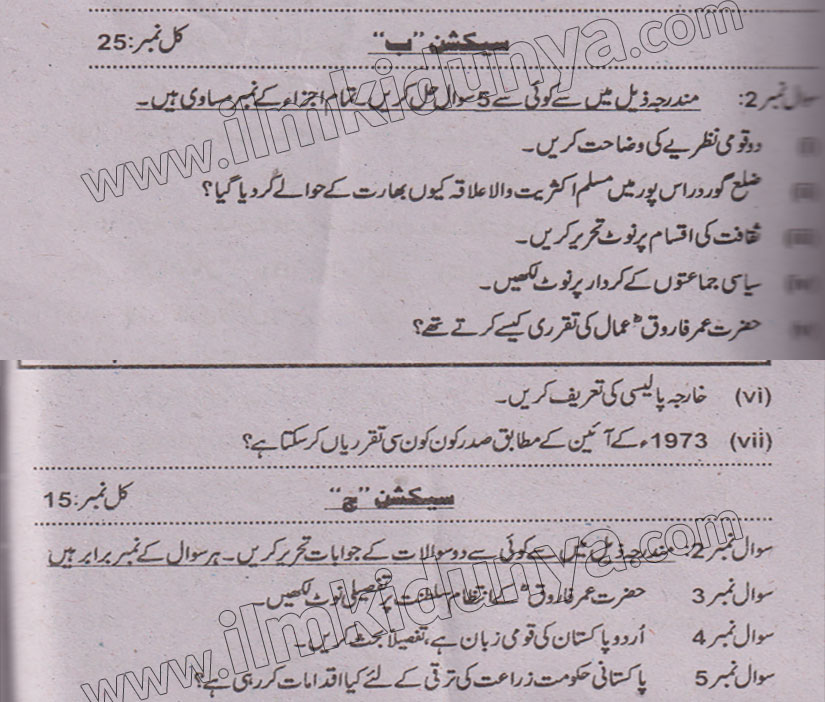 سیکشن "ب" کل نمبر: 25
سوال نمبر 2: مندرجہ ذیل میں سے کوئی سے 5 سوال حل کریں۔ تمام اجزاء کے نمبر مساوی ہیں۔
(i) دو قومی نظریے کی وضاحت کریں۔
(ii) ضلع گورداس پور میں مسلم اکثریت والا علاقہ کیوں بھارت کے حوالے کر دیا گیا؟
(iii) ثقافت کی اقسام پر نوٹ تحریر کریں۔
(iv) سیاسی جماعتوں کے کردار پر نوٹ لکھیں۔
(v) حضرت عمر فاروقؓ عمال کی تقرری کیسے کرتے تھے؟
(vi) خارجہ پالیسی کی تعریف کریں۔
(vii) 1973ء کے آئین کے مطابق صدر کون کون سی تقرریاں کر سکتا ہے؟
سیکشن "ج" کل نمبر: 15
سوال نمبر 2: مندرجہ ذیل میں سے کوئی سے دو سوالات کے جوابات تحریر کریں۔ ہر سوال کے نمبر برابر ہیں
سوال نمبر 3 حضرت عمر فاروقؓ کے انتظام سلطنت پر تفصیلی نوٹ لکھیں۔
سوال نمبر 4 اُردو پاکستان کی قومی زبان ہے، تفصیلاً بحث کریں۔
سوال نمبر 5 پاکستانی حکومت زراعت کی ترقی کے لئے کیا اقدامات کر رہی ہے؟
www.ilmkidunya.com
www.ilmkidunya.com